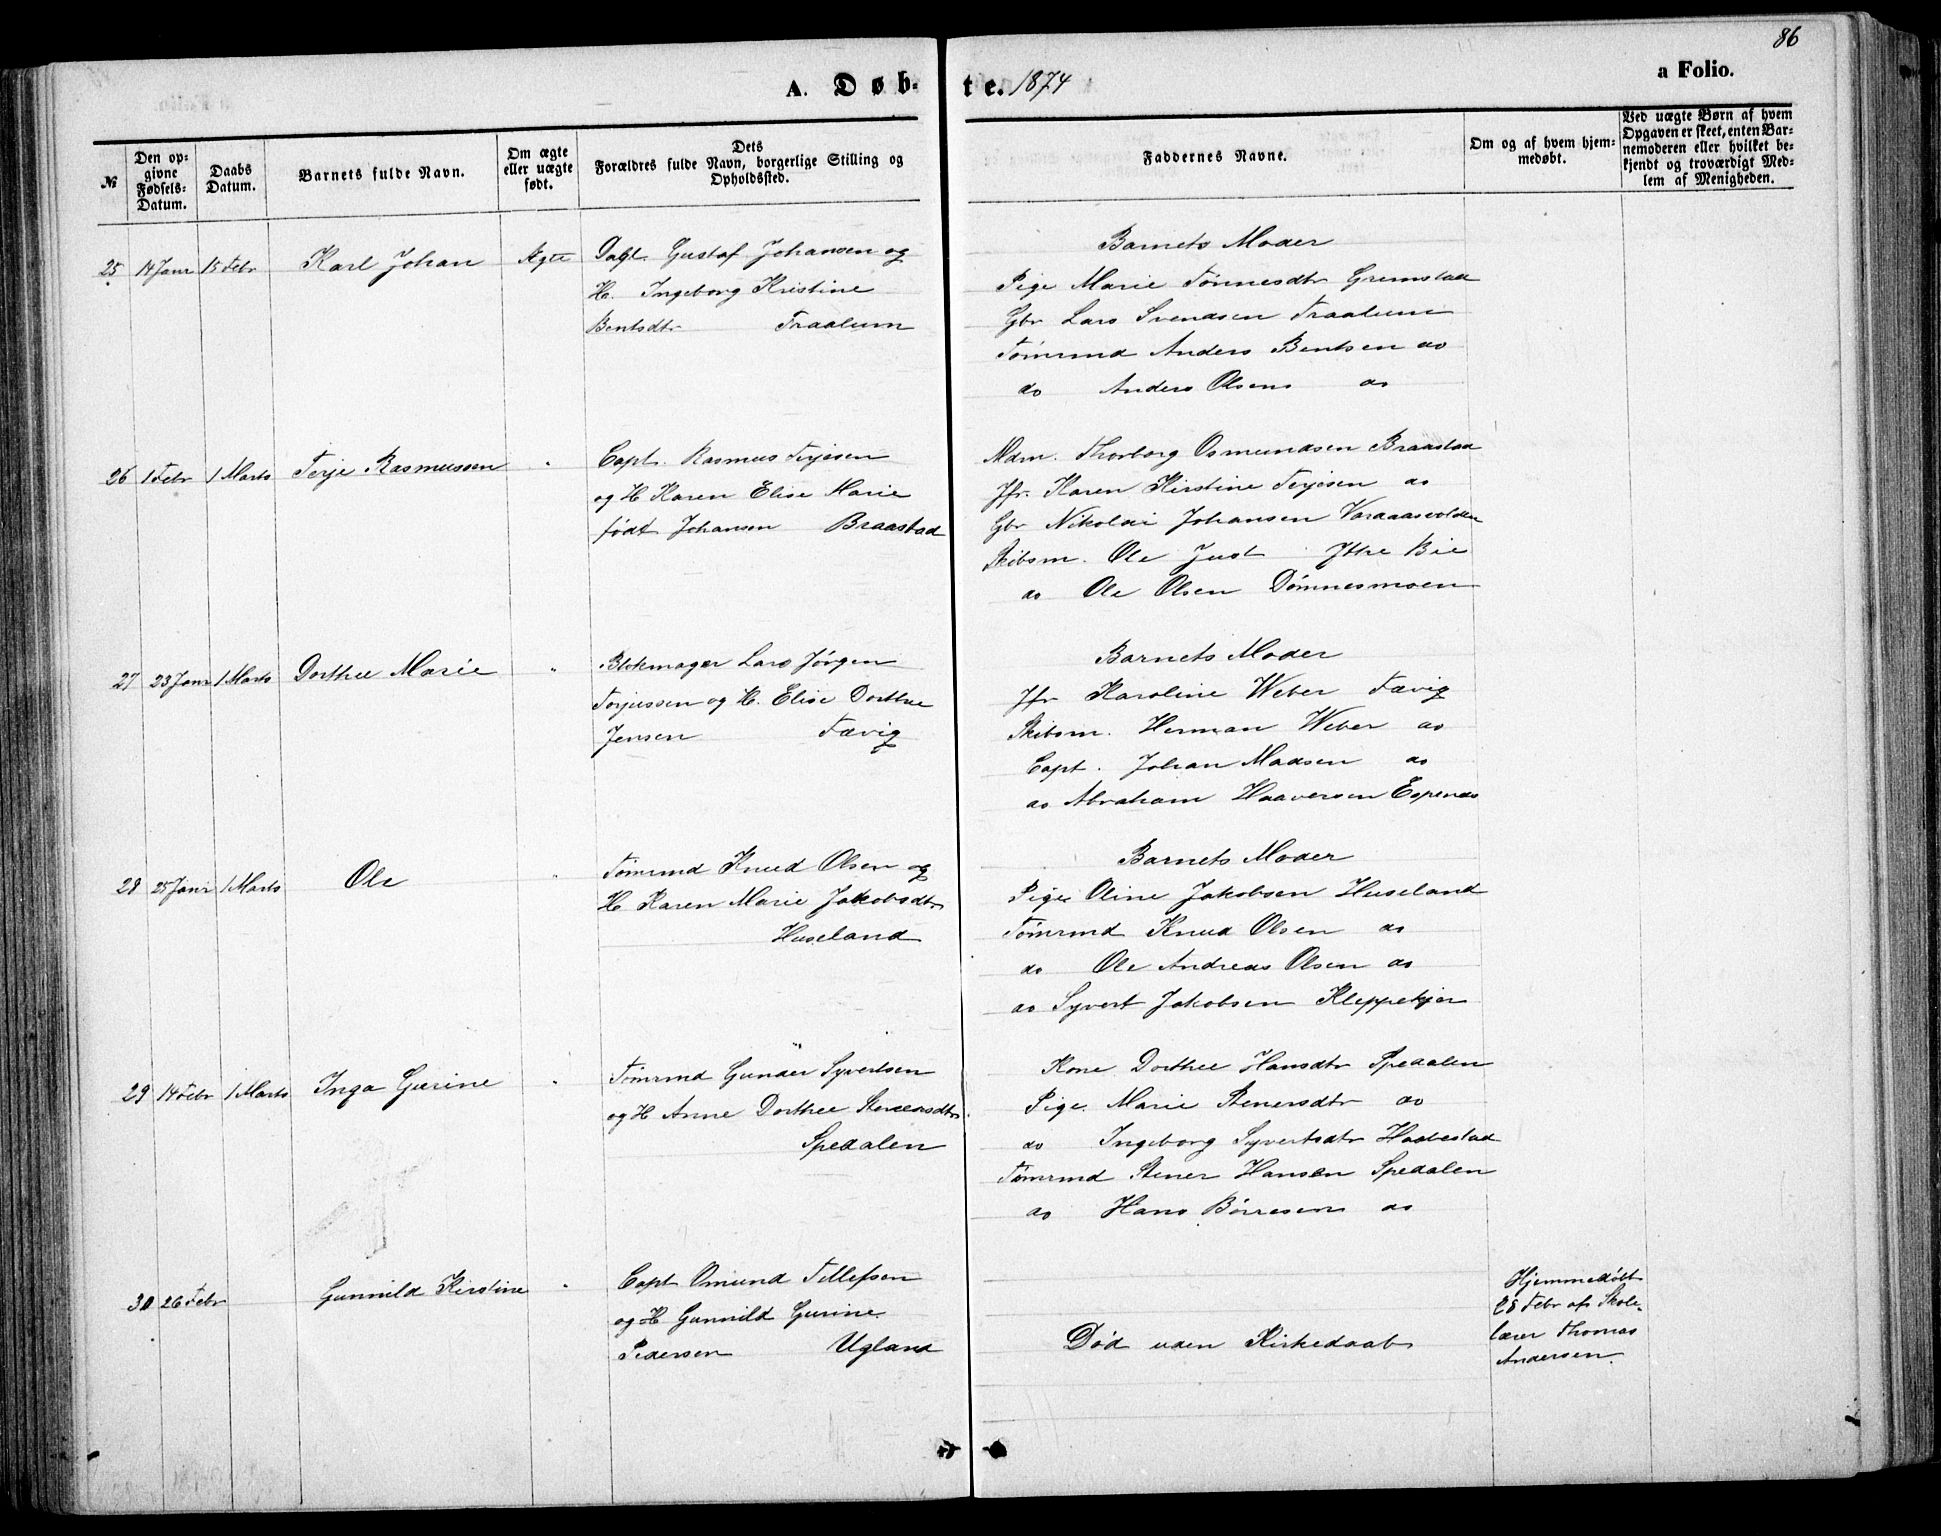 86
A. Døb-
te. 1874
a Folio.
№
Den op-
givne
Fødsels-
Datum.
Daabs
Datum.
Barnets fulde Navn.
Om ægte
eller uægte
født.
Dets
Forældres fulde Navn, borgerlige Stilling og
Opholdssted.
Faddernes Navne.
Om og af hvem hjem-
medøbt.
Ved uægte Børn af hvem
Opgaven er skeet, enten Bar-
nemoderen eller hvilket be-
kjendt og troværdigt Med-
lem af Menigheden.
25 14 Janr 15 Febr Karl Johan Ægte
Gustaf Johansen og
H. Ingeborg Kristine
Bentsdtr Traalum
Barnets Moder
Pige Marie Tönnesdtr Gremstad
Gbr Lars Svendsen Traalum
Tömrmd Anders Bentsen do
do Anders Olsen do
26 1 Febr 1 Marts Terje Rasmussen "
Capt. Rasmus Terjesen
og H Karen Elise Marie
født Johansen Braastad
Mdm. Thorborg Osmundsen Braastad
Jfr. Karen Kirstine Terjesen do
Gbr Nikolai Johansen
Skibsm. Ole Just Ytre Bie
do Ole Olsen Dömnesmoen
27 23 Janr 1 Marts Dorthee Marie "
Blokmager Lars Jörgen
Terjussen og H. Elise Dorthee
Jensen Fævig
Barnets Moder
Jfr Karoline Weber Fævig
Skibsm. Herman Weber do
Capt. Johan Madsen do
do Abraham Haaversen Espenæs
28 25 Janr 1 Marts Ole "
Tömrmd Knud Olsen og
H Karen Marie Jakobsdtr
Huseland
Barnets Moder
Pige Oline Jakobsen Huseland
Tömrmd Knud Olsen do
do Ole Andreas Olsen do
do Syvert Jakobsen Kleppekjær
29 14 Febr 1 Marts Inga Gurine "
Tömrmd Gunder Syvertsen
og H Anne Dorthee Stenersdtr.
Spedalen
Kone Dorthee Hansdtr Spedalen
Pige Marie Stenersdtr do
do Ingeborg Syvertsdtr Habbestad
Tömrmd Stener Hansen Spedalen
do Hans Börresen do
30 26 Febr Gunnild Kirstine "
Capt Omund Tellefsen
og H Gunnild Gurine
Pedersen Ugland
Död uden Kirkedaab
Hjemmedöbt
28 Febr af Skole-
lærer Thomas
Andersen.